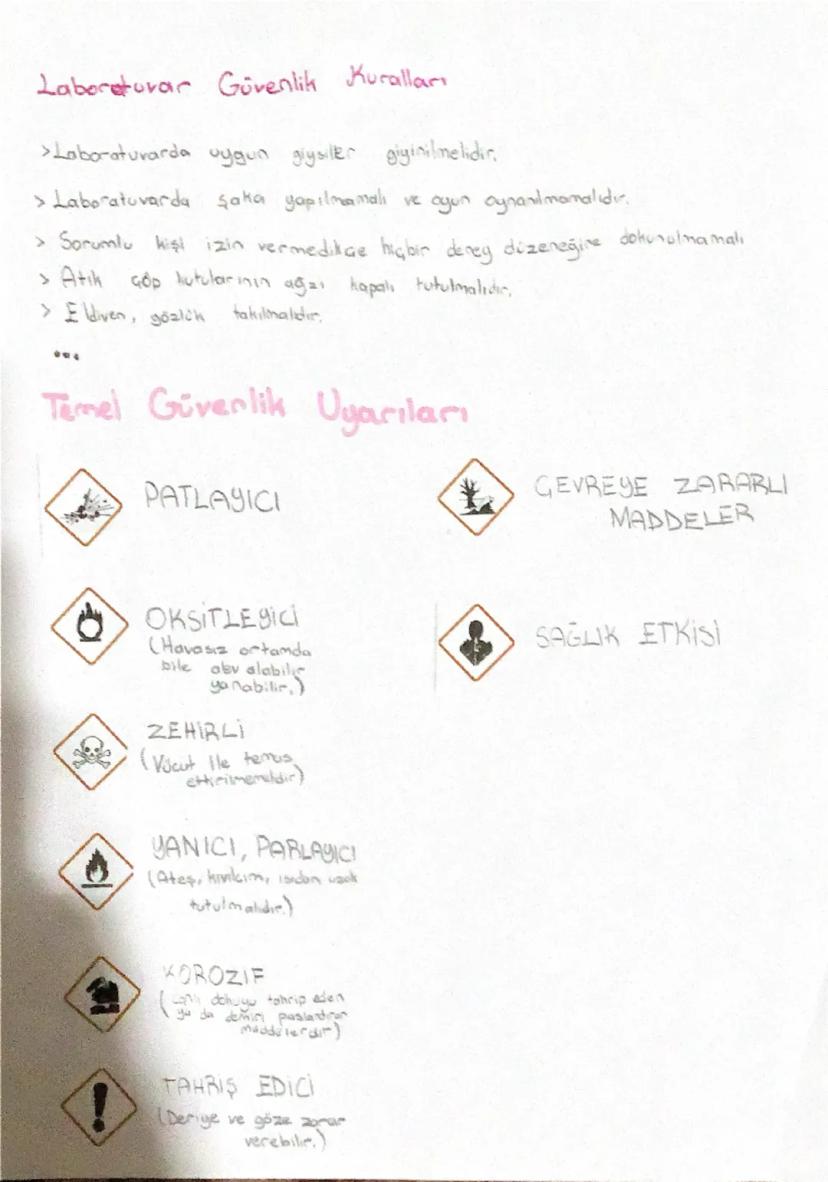 Laboratuvar Güvenlik Kuralları
>Laboratuvarda uygun giysiler giyinilmelidir.
> Laboratuvarda şaka yapılmamalı ve oyun oynanılmamalıdır.
> Sorumlu kişi izin vermedikçe hiçbir deney düzeneğine dokunulmamalı
> Atık çöp kutularının ağzı kapalı tutulmalıdır.
> Eldiven, gözlük takılmalıdır.
...
Temel Güvenlik Uyarıları
PATLAYICI
OKSİTLEYİCİ
(Havasız ortamda
bile alev alabilir
yanabilir.)
ZEHİRLİ
(Vücut ile temas
ettirilmemelidir)
YANICI, PARLAYICI
(Ateş, kıvılcım, ısıdan uzak
tutulmalıdır.)
KOROZİF
(Canlı dokuyu tahrip eden
ya da demiri paslandıran
maddelerdir)
TAHRİŞ EDİCİ
(Deriye ve göze zarar
verebilir.)
ÇEVREYE ZARARLI
MADDELER
SAĞLIK ETKİSİ